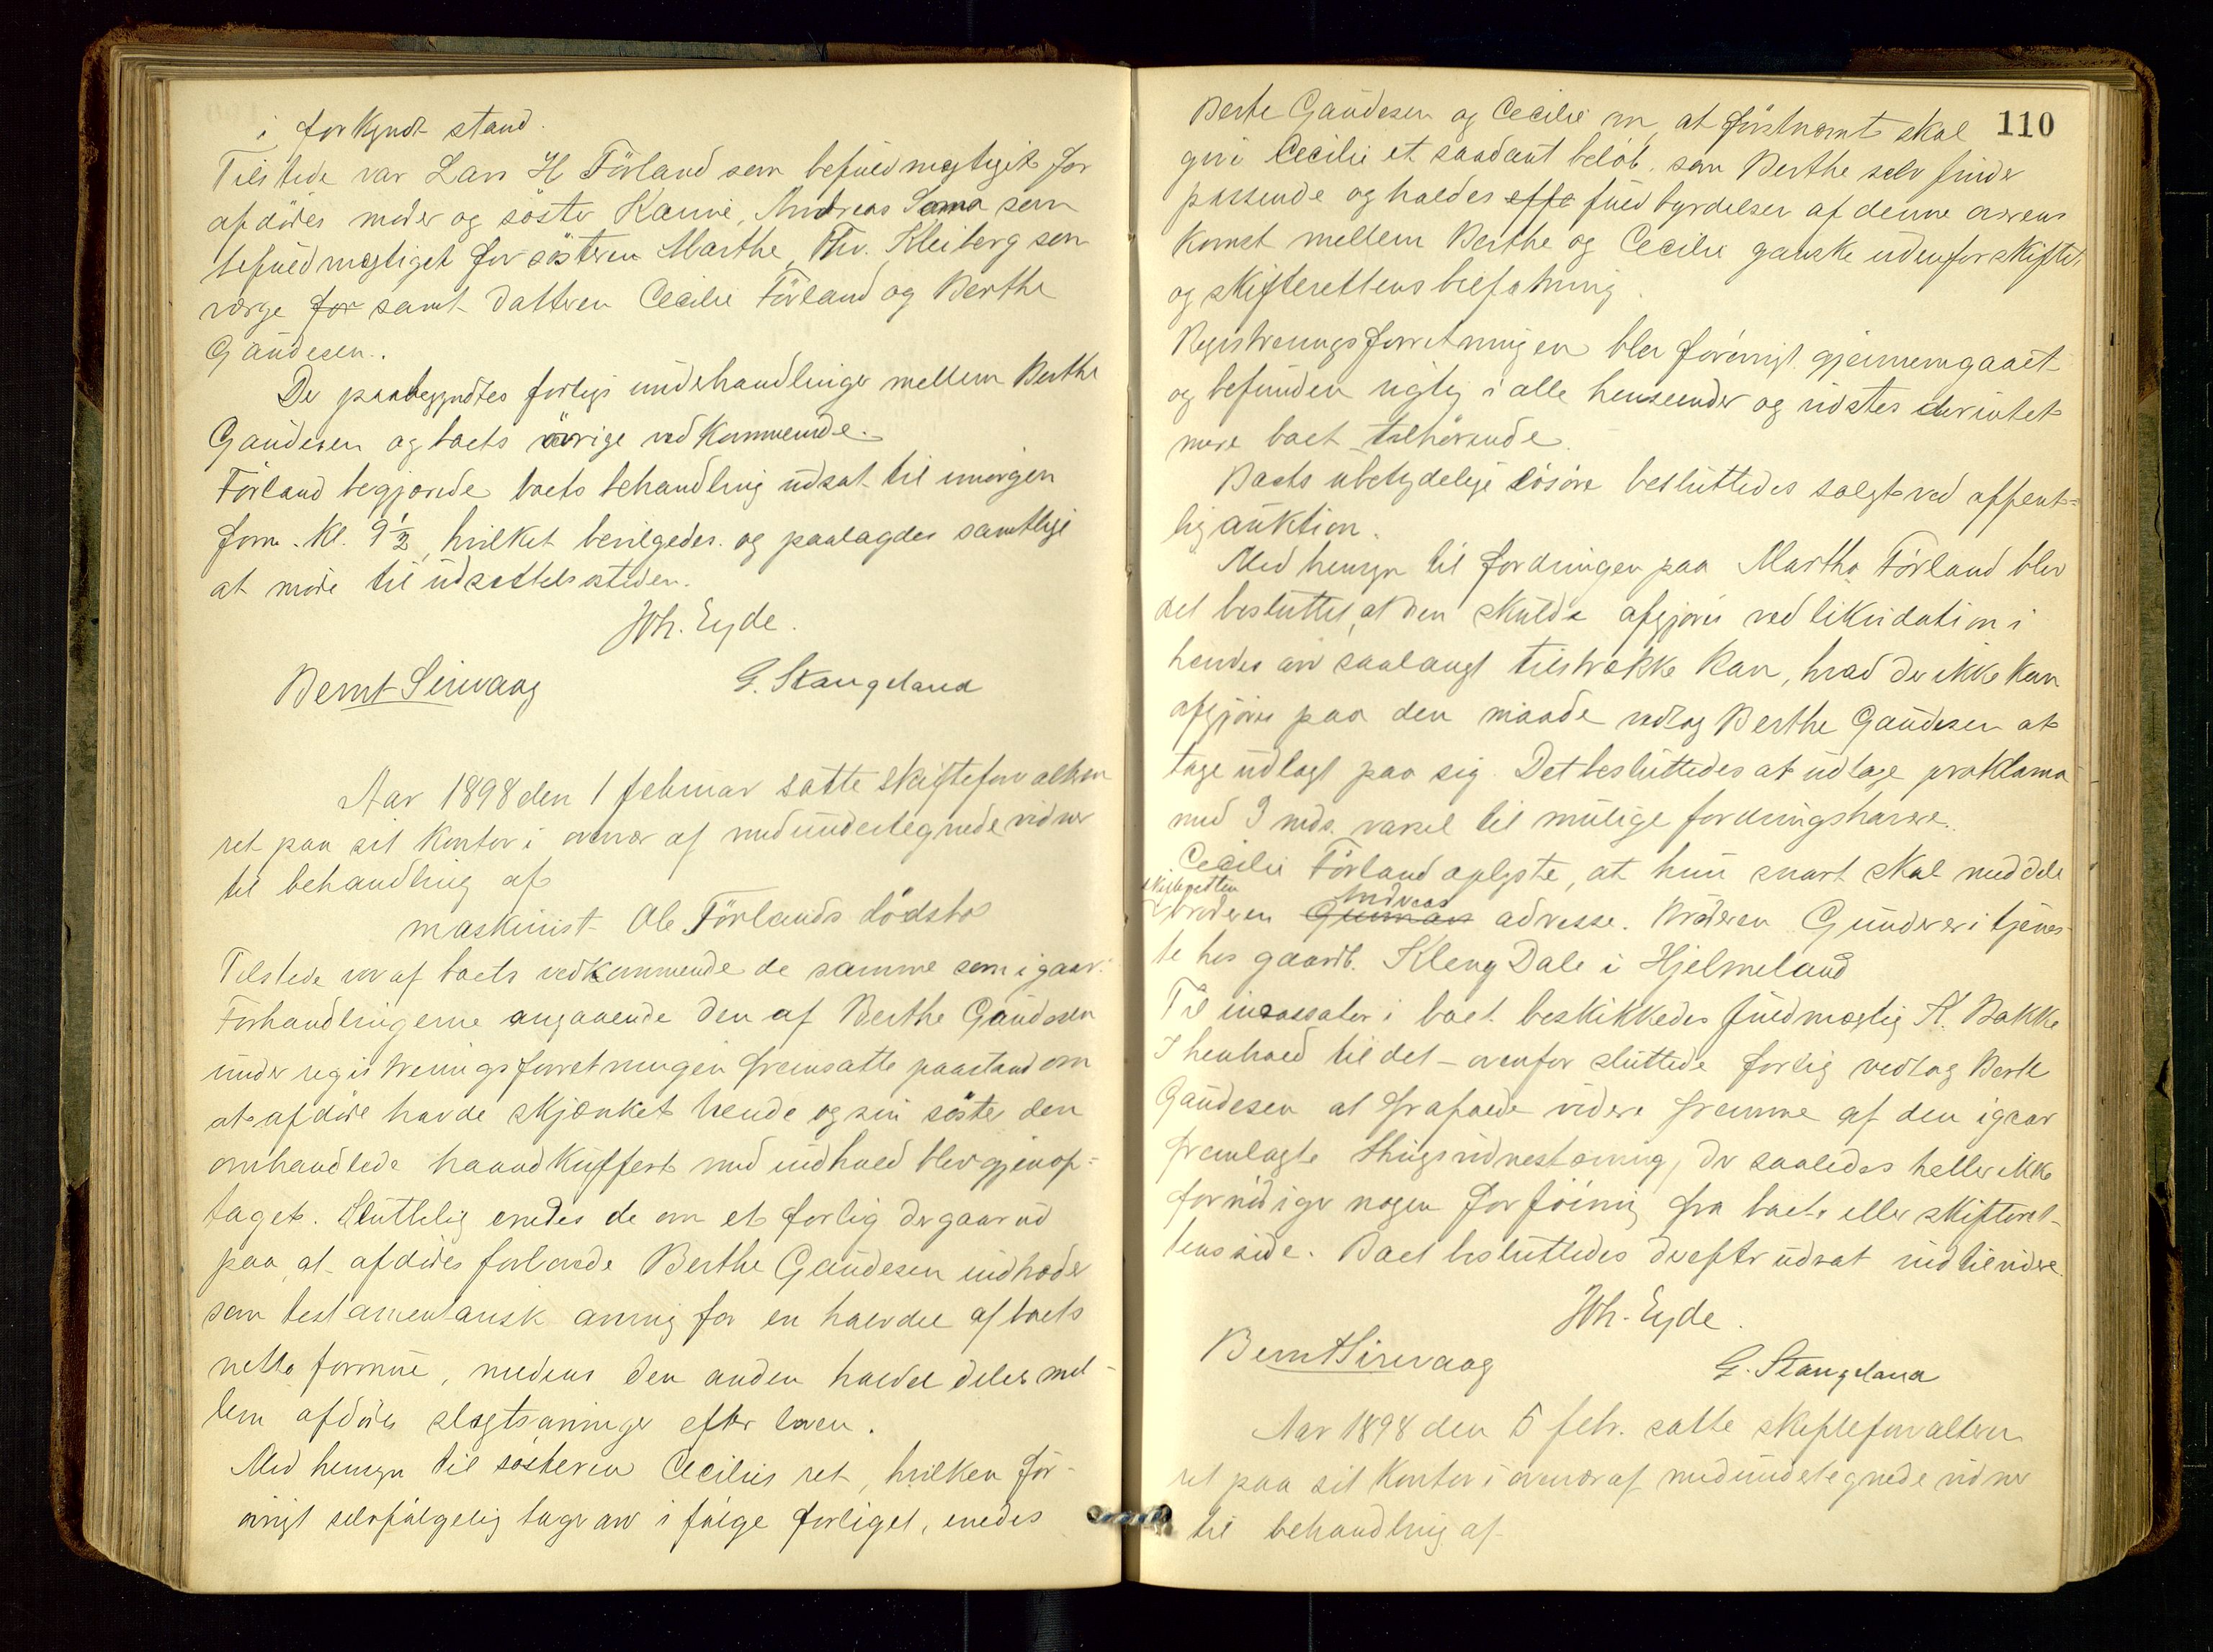 i forkyndt stand.
Tilstede var Lars H Förland som befuldmægtiget for
afdödes moder og söster Karine, Andreas Soma som
befuldmægtiget for sösteren Marthe, Thv. Kleiberg som
værge for samt datteren Cecilie Förland og Berthe
Gaudesen.
De paabegyndtes forligs underhandlinger mellem Berthe
Gaudesen og boets övrige vedkommende.
Förland begjærede boets behandling udsat til imorgen
form. Kl. 9½, hvilket bevilgedes og paalagdes samtlige
at möde til udsættelsestiden.
Joh. Eyde.
Bernt Sirevaag G. Stangeland
Aar 1898 den 1 februar satte skifteforvalteren
ret paa sit Kontor i overvær af medundertegnede vidner
til behandling af
maskinist Ole Förlands dödsbo
Tilstede var af boets vedkommende de samme som igaar.
Forhandlingerne angaaende den af Berthe Gaudesen
under registreringsforretningen fremsatte paastand om
at afdöde havde skjænket hende og sin söster den
omhandlede haandkuffert med indhold blev gjenop=
taget. Sluttelig enedes de om et forlig der gaar ud
paa, at afdödes forlovede Berthe Gaudesen indtræder
som testamentarisk arving for en halvdel af boets
netto formue, medens den anden halvdel deles mel-
lem afdödes slegtsarvinger efter loven.
Med hensyn til sösteren Cecilies ret, hvilken for-
övrigt selvfölgelig tager arv i fölge forliget, enedes
110
Berthe Gaudesen og Cecilie om, at förstnævnte skal
give Cecilie et saadant belöb, som Berthe selv finder
passende og holdes effe fuldbyrdelsen af denne overens
komst mellem Berthe og Cecilie ganske udenfor skiftet
og skifterettens befatning.
Registreringsforretningen blev forövrigt gjennemgaaet
og befunden rigtig i alle henseender og vidstes der intet
mere boet tilhörende.
Boets ubetydelige lösöre besluttedes solgt ved offent=
lig auktion.
Med hensyn til fordringen paa Martha Förland blev
det besluttet, at den skulde afgjöres ved likvidation i
hendes arv saalangt tilstrække kan, hvad der ikke kan
afgjöres paa den maade vedtog Berthe Gaudesen at
tage udlagt paa sig. Det besluttedes at udtage proklama
med 3 mds. varsel til mulige fordringshavere.
Cecilie Förland oplyste, at hun snart skal meddele
skifteretten Andreas
broderen Gunnar adresse. Broderen Gunder er i tjenes-
te hos gaardb. Kleng Dale i Hjelmeland
Til incassator i boet beskikkedes fuldmægtig A. Bakke
I henhold til det ovenfor sluttede forlig vedtog Berthe
Gaudesen at frafalde videre fremme af den igaar
fremlagte thingsvidnestævning, der saaledes heller ikke
fornödiger nogen forföining fra boets eller skifteret-
tens side. Boet besluttedes derefter udsat indtil videre.
Joh. Eyde.
Bernt Sirevaag G. Stangeland
Aar 1898 den 5 febr. satte skifteforvalteren
ret paa sit Kontor i overvær af medundertegnede vidner
til behandling af